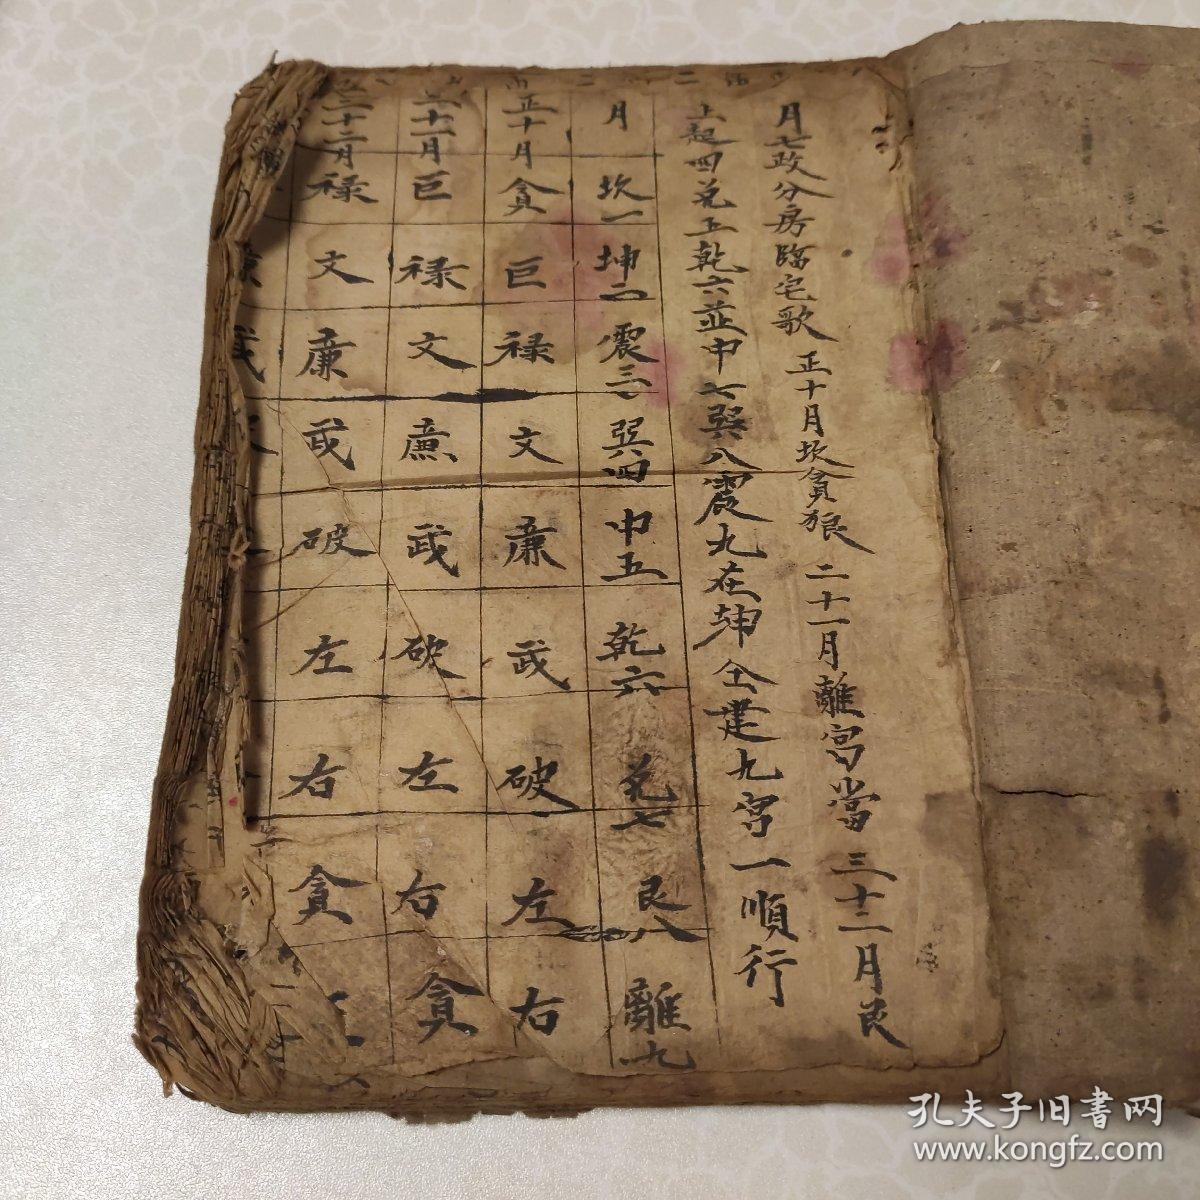 月七政分房臨宅歌 正十月坎貪狼 二十一月離宮當 三十二月艮
上起四兌五乾六並中七巽八震九在坤仝建九宮一順行
月 坎一 坤二 震三 巽四 中五 乾六 兌七 艮八 離九
正十月 貪 巨 禄 文 廉 武 破 左 右
二十一月 巨 禄 文 廉 武 破 左 右 貪
三十二月 禄 文 廉 武 破 左 右 貪
孔夫子旧書网
www.kongfz.com